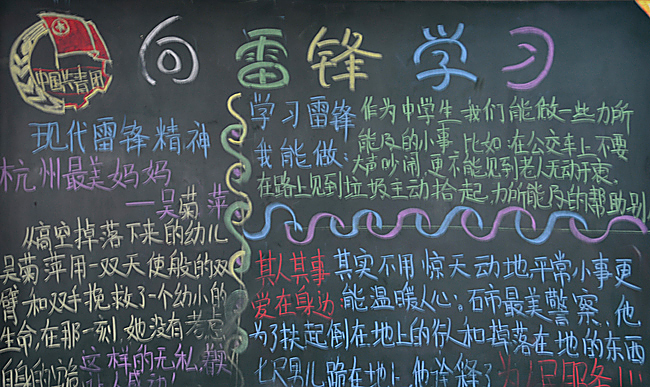 中国共青团
向雷锋学习
现代雷锋精神
杭州最美妈妈
——吴菊萍
从高空掉落下来的幼儿
吴菊萍用一双天使般的双
臂和双手挽救了一个幼小的
生命,在那一刻她没有考虑
自身的
这样的无私,
学习雷锋
我能做:
作为中学生我们能做一些力所
能及的小事,比如:在公交车上不要
大声吵闹,更不能见到老人无动于衷,
在路上见到垃圾主动拾起,力所能及的帮助别人
其人其事
爱在身边
其实不用惊天动地,平常小事更
能温暖人心。石市最美警察,他
为了扶起倒在地上的行人和掉落在地的东西
七尺男儿跪在地上,他诠释了为人民服务!!!